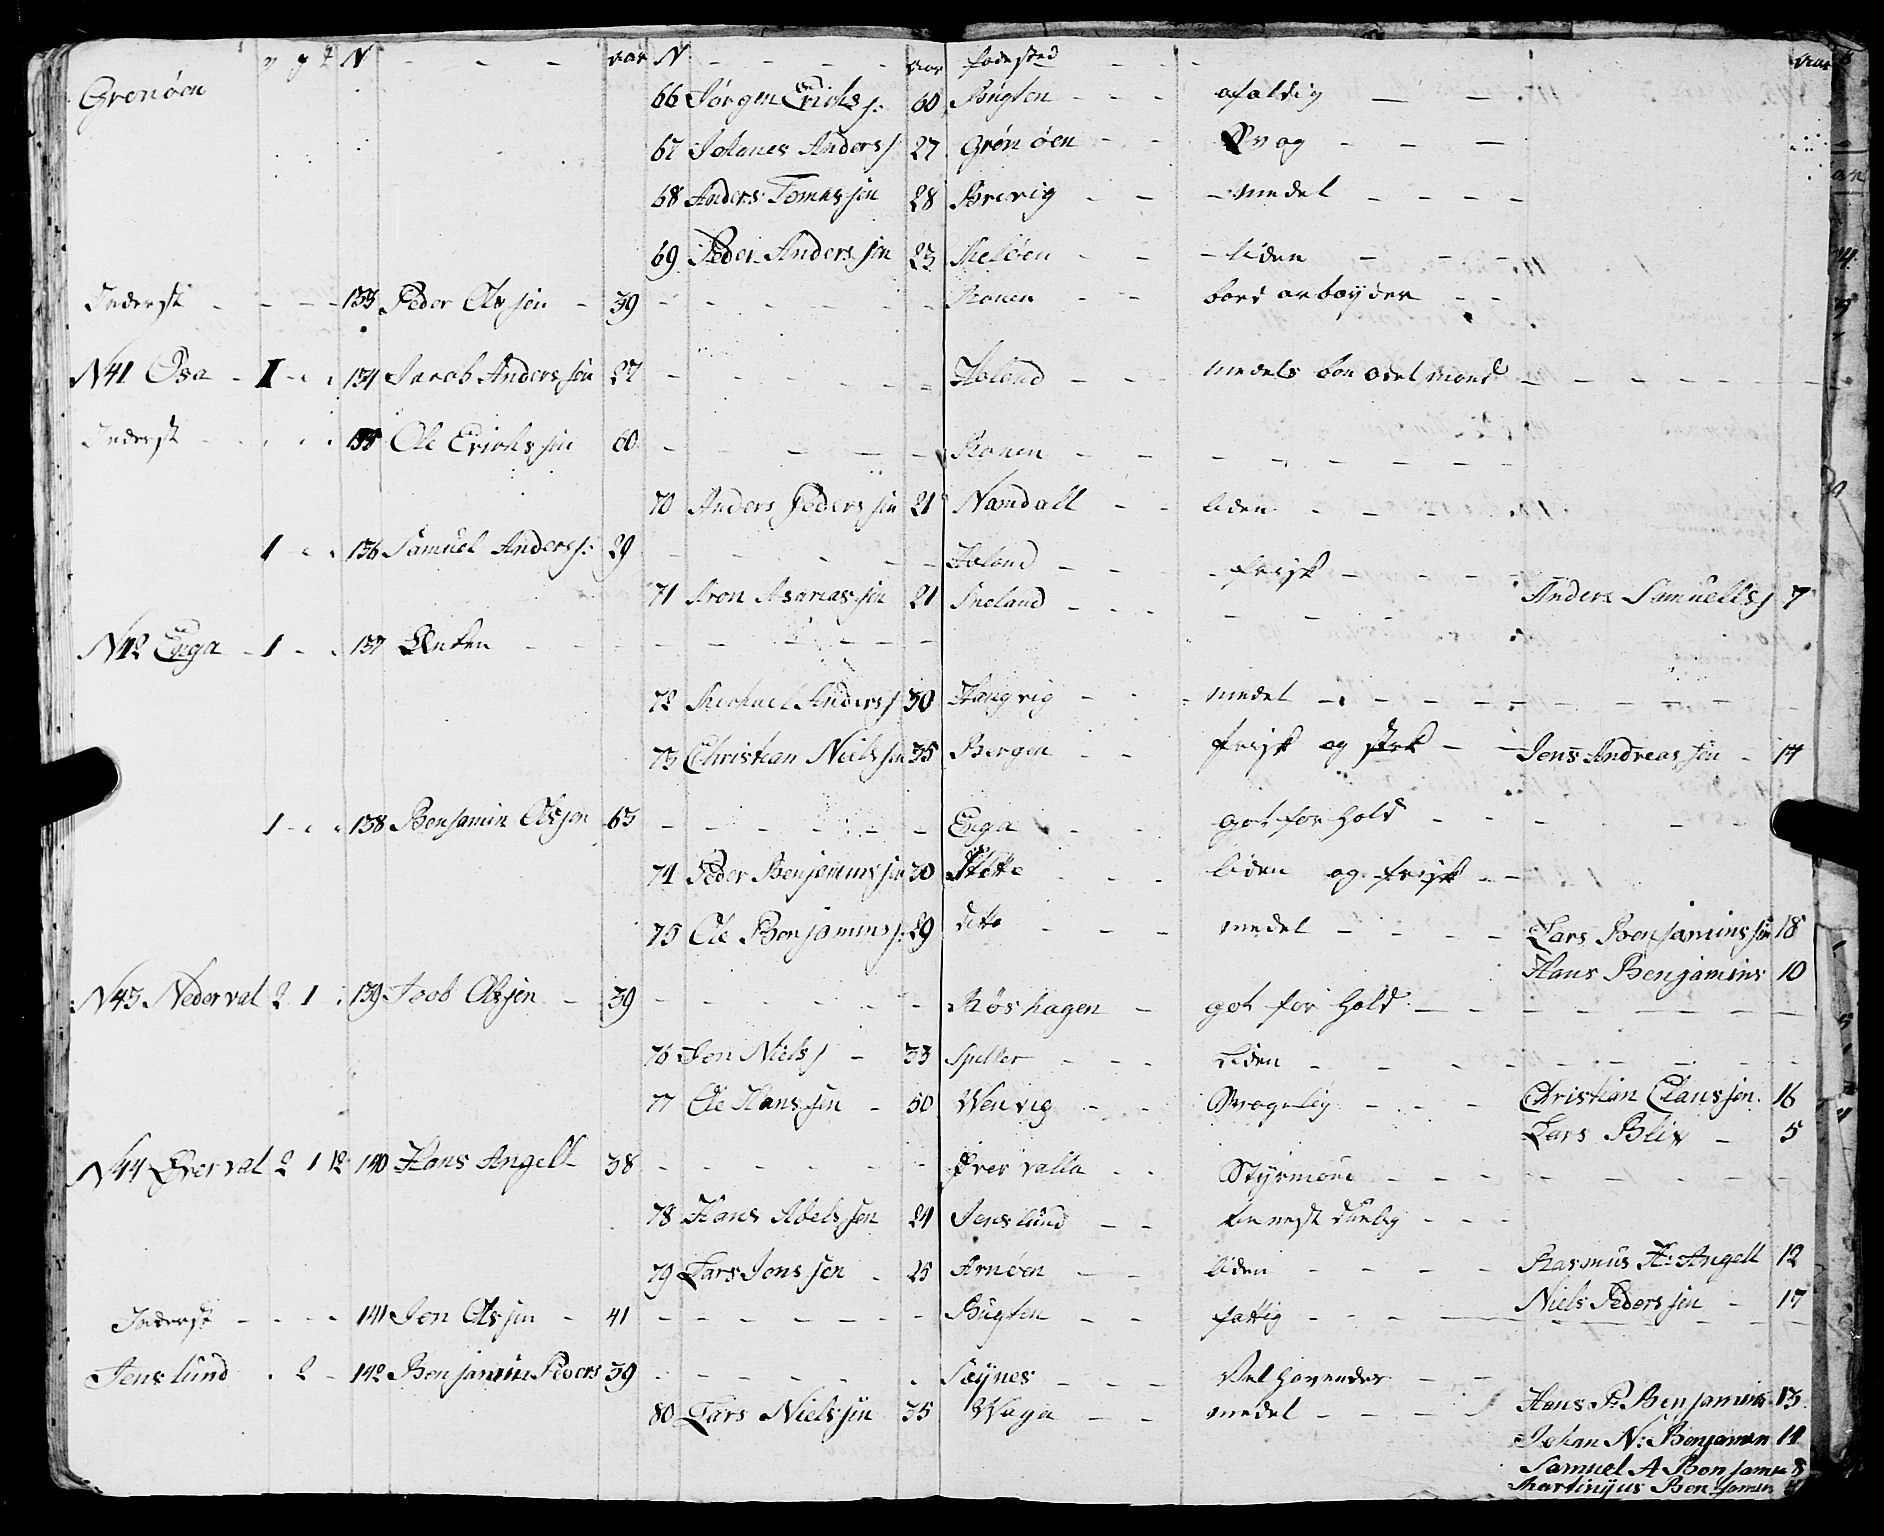 v g q N - - - aar N - - - - aar fødested - - - aar
Grønøen 66 Jørgen Erichs j: 60 Bugten - - - afaldig - -
67 Johanes Anders j 27 Grønøen - - Svag - - -
68 Anders Tomas sen 28 Brevig - - - medel - - - -
69 Peder Anders sen 23 Meløen - - - liden - - -
Inderst - - - - 133 Peder Ols sen - 39 - - - - - Ronen - - bord arbøyder - -
N41 Osa - 1 - - 134 Jacob Anders sen 27 - - - - - Holand - - - medels bon odel mand - - - - - -
Inderst - - - - 135 Ole Erichs sen 60 - - - - - Ronen - - - - - - - -
70 Anders Peders sen 21 Namdall - - liden - - - -
1 - - 136 Samuel Anders j: 29 - - - - - Holand - - - - frisk - - - -
71 Aron Asarias sen 21 Meland - - - - - - - Anders Samuells j 7
N42 Enga - 1 - - 137 Enken - - - - - - - -
72 Michael Anders j 30 Haugvig - - - medel - - - - - - - - -
73 Christian Niels sen 35 Bergen - - frisk og stærk - - Jens Andreas sen - 17
1 - - 138 Benjamin Ols sen 63 - - - - - Enga - - got for hold - - - - -
74 Peder Benjamins sen 30 Ditto - - - liden og frisk - -
75 Ole Benjamins j: 29 ditto - - - medel - - - - Lars Benjamins sen 18
Hans Benjamins 10
N43 Nederval 2 1 - 139 Joob Ols sen - 39 - - - - - Røshagen - got for hold - - - - - - -
76 Jon Niels j - 33 Spelter - - - Liden - - - - - - - -
77 Ole Hans sen - 50 Wenvig - - Svagelig - - - Christian Claus sen 16
Lars Blix - 5
N44 Øverval 2 1 12 140 Hans Angell 38 - - - - - Øvervalla - - Styrmand - - - - - - -
78 Hans Abels sen 24 Jenslund - - tienest duelig - - -
79 Lars Jons sen - 25 Arnøen - - liden - - - - Rasmus H: Angell 12
Inderst - - - - 141 Jon Ols sen - 41 - - - - - Bugten - - fattig - - - - Niels Peders sen - 17
Jenslund - 2 - 142 Benjamin Peders 39 - - - - - Søynes - - - Velhavendes - -
80 Lars Niels sen 35 Waga - - medel - - - - Hans P: Benjamins 13
Johan N: Benjamin 11
Samuel A Benjamin 8
Martinijus Benjamin 4